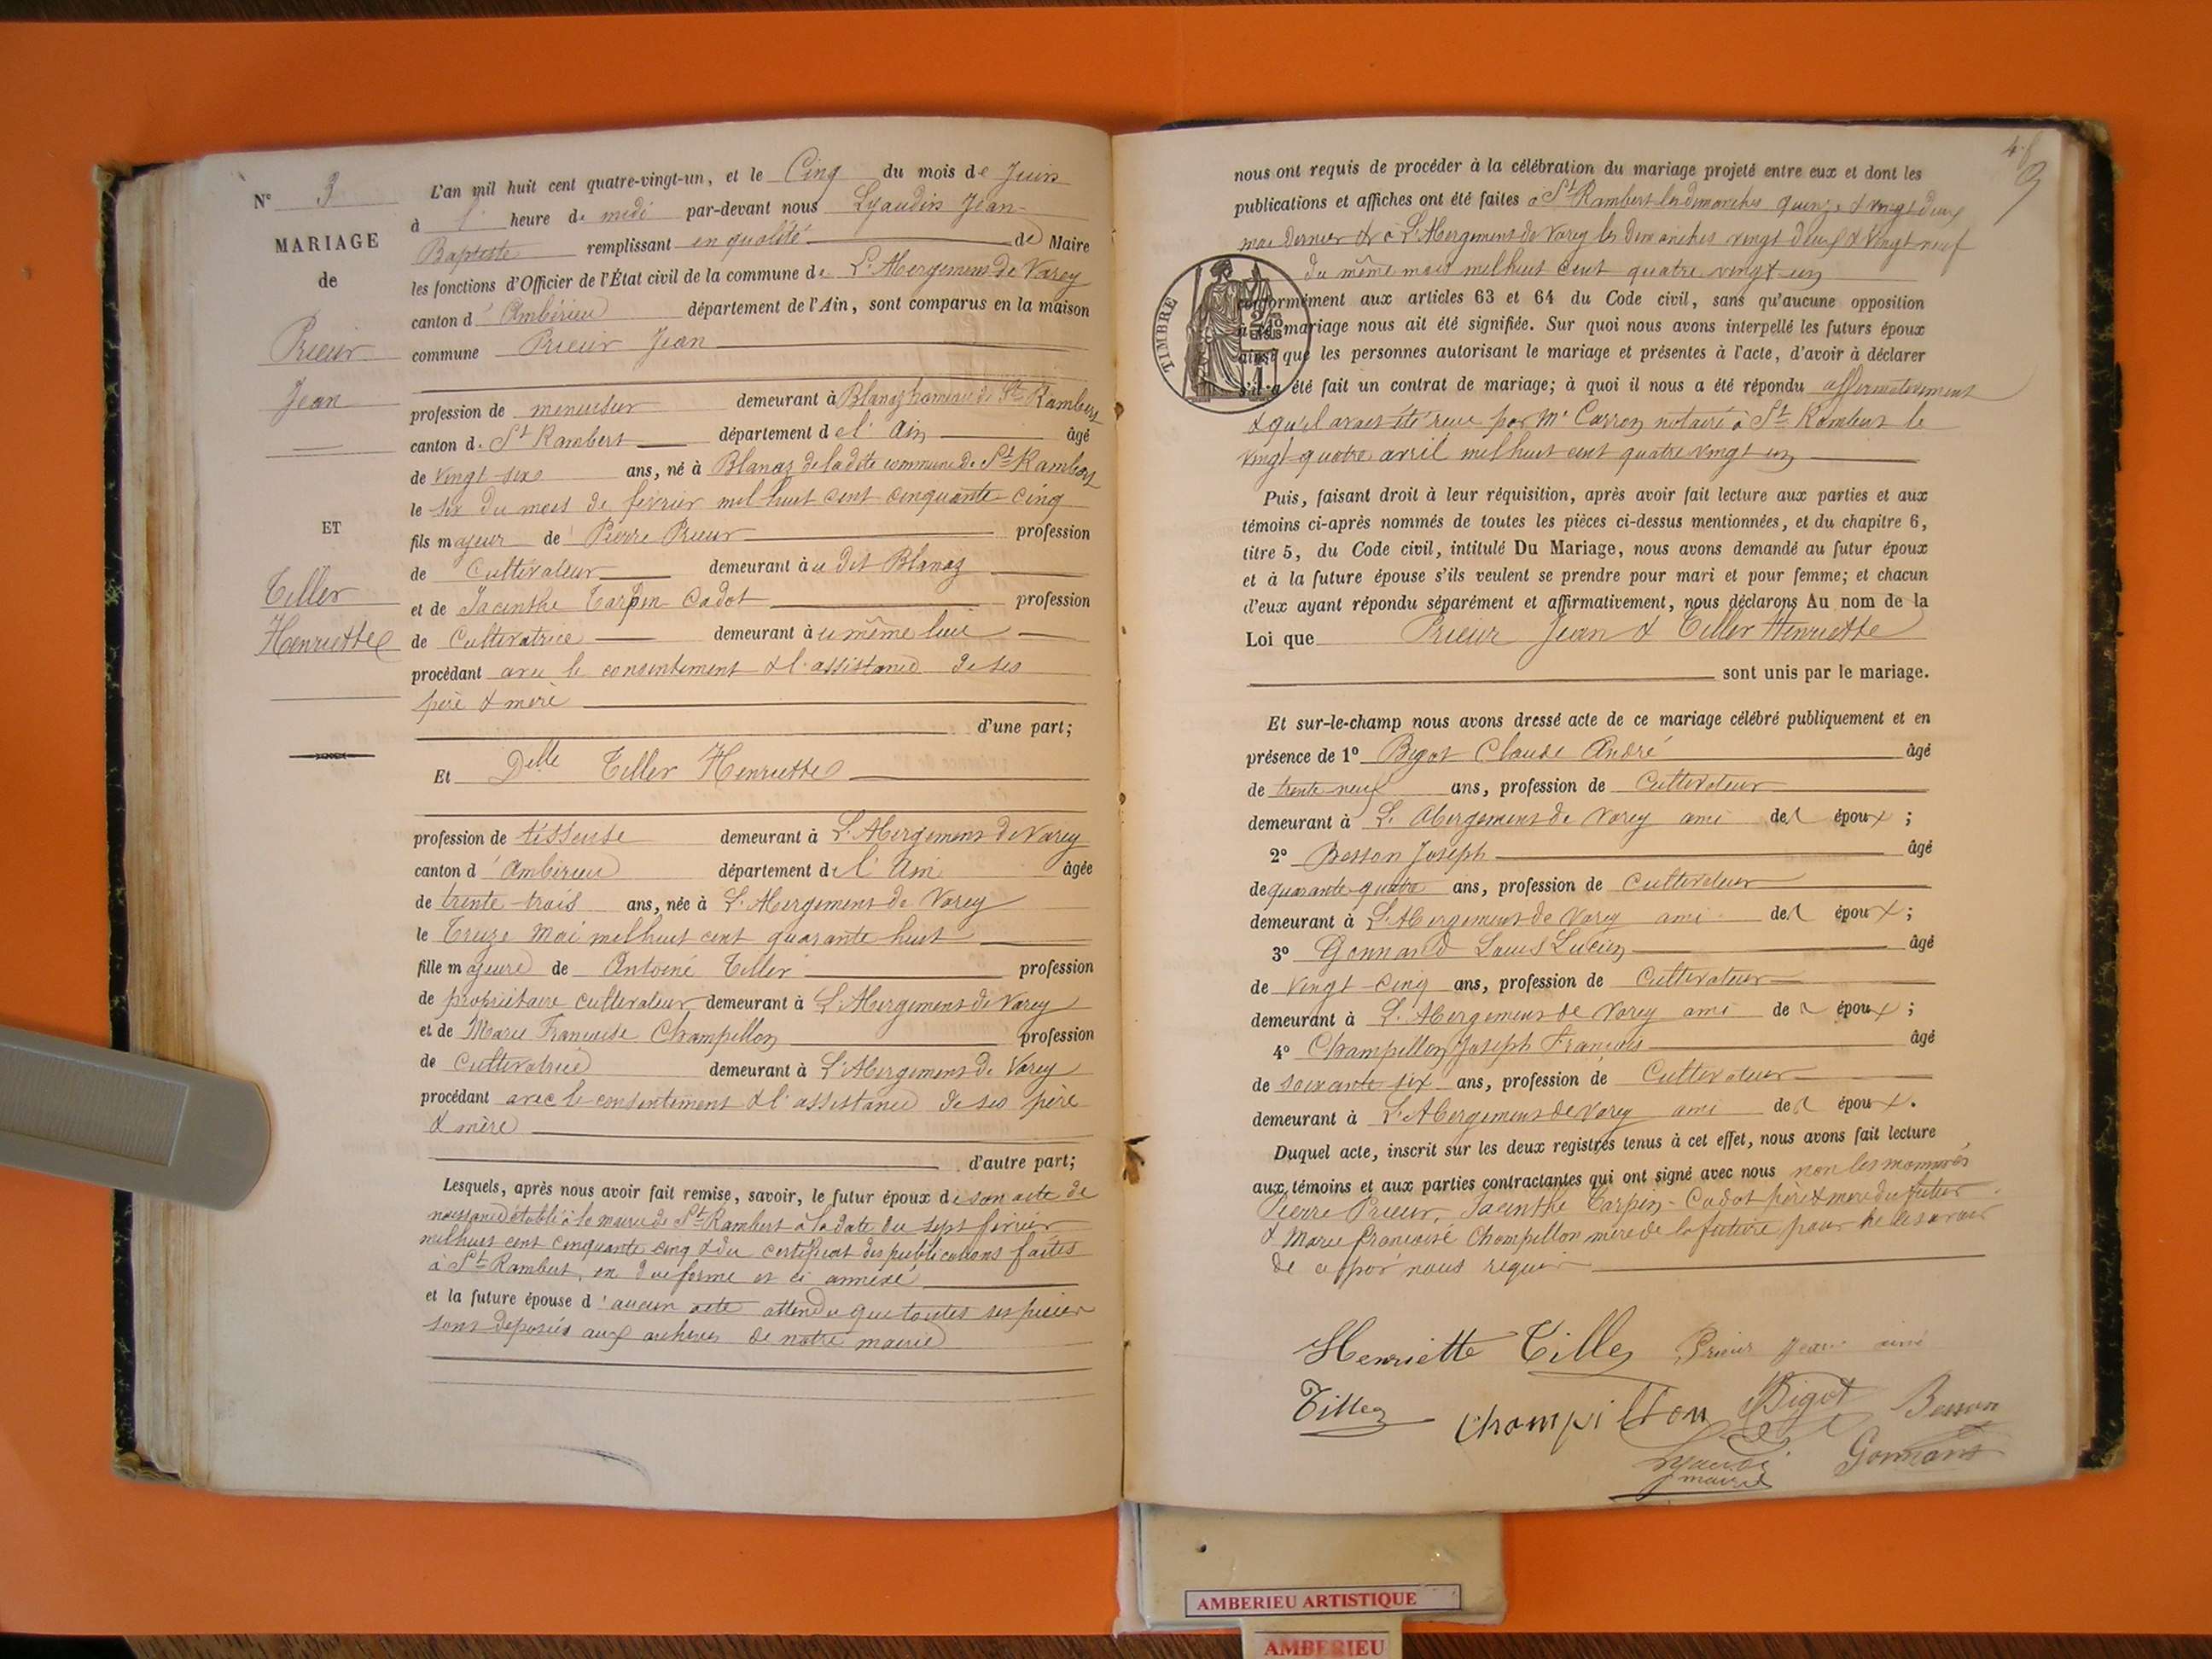 N° 3
MARIAGE
de
Prieur
Jean
ET
Tiller
Henriette
L'an mil huit cent quatre-vingt-un, et le Cinq du mois de Juin
à 1 heure de midi par-devant nous Lyaudin Jean-
Baptiste remplissant en qualité de Maire
les fonctions d'Officier de l'État civil de la commune de L'Abergement de Varey
canton d'Ambérieu département de l'Ain, sont comparus en la maison
commune Prieur Jean
profession de menuisier demeurant à Blanaz hameau de St Rambert
canton de St Rambert département de l'Ain âgé
de vingt six ans, né à Blanaz de la dite commune de St Rambert
le six du mois de février mil huit cent cinquante-cinq
fils majeur de Pierre Prieur profession
de Cultivateur demeurant au dit Blanaz
et de Jacinthe Tarpin Cadot profession
de Cultivatrice demeurant au même lieu
procédant avec le consentement & l'assistance de ses
père & mère
d'une part;
Et Delle Tiller Henriette
profession de tisseuse demeurant à L'Abergement de Varey
canton d'Ambérieu département de l'Ain âgée
de trente-trois ans, née à L'Abergement de Varey
le Treize Mai mil huit cent quarante huit
fille majeure de Antoine Tiller profession
de propriétaire cultivateur demeurant à L'Abergement de Varey
et de Marie Françoise Champillon profession
de Cultivatrice demeurant à L'Abergement de Varey
procédant avec le consentement & l'assistance de ses père
& mère
d'autre part;
Lesquels, après nous avoir fait remise, savoir, le futur époux de son acte de
naissance établi à la mairie de St Rambert à la date du sept février
mil huit cent cinquante cinq & du certificat des publications faites
à St Rambert, en due forme et ci annexé
et la future épouse d'aucun acte attendu que toutes ses pièces
sont déposées aux archives de notre mairie
nous ont requis de procéder à la célébration du mariage projeté entre eux et dont les
publications et affiches ont été faites à St Rambert les dimanches quinze & vingt deux
mai dernier & à L'Abergement de Varey les dimanches vingt deux & vingt neuf
du même mois mil huit cent quatre vingt un
TIMBRE
conformément aux articles 63 et 64 du Code civil, sans qu'aucune opposition
à ce mariage nous ait été signifiée. Sur quoi nous avons interpellé les futurs époux
ainsi que les personnes autorisant le mariage et présentes à l'acte, d'avoir à déclarer
s'il a été fait un contrat de mariage; à quoi il nous a été répondu affirmativement
& qu'il avait été reçu par Me Carron notaire à St Rambert le
vingt-quatre avril mil huit cent quatre vingt un
Puis, faisant droit à leur réquisition, après avoir fait lecture aux parties et aux
témoins ci-après nommés de toutes les pièces ci-dessus mentionnées, et du chapitre 6,
titre 5, du Code civil, intitulé Du Mariage, nous avons demandé au futur époux
et à la future épouse s'ils veulent se prendre pour mari et pour femme; et chacun
d'eux ayant répondu séparément et affirmativement, nous déclarons Au nom de la
Loi que Prieur Jean & Tiller Henriette
sont unis par le mariage.
Et sur-le-champ nous avons dressé acte de ce mariage célébré publiquement et en
présence de 1° Bigot Claude André âgé
de trente-neuf ans, profession de Cultivateur
demeurant à L'Abergement de Varey ami des époux ;
2° Besson Joseph âgé
de quarante-quatre ans, profession de Cultivateur
demeurant à L'Abergement de Varey ami des époux ;
3° Gonnand Louis Lucien âgé
de Vingt-cinq ans, profession de Cultivateur
demeurant à L'Abergement de Varey ami des époux ;
4° Champillon Joseph François âgé
de soixante-six ans, profession de Cultivateur
demeurant à L'Abergement de Varey ami des époux.
Duquel acte, inscrit sur les deux registres tenus à cet effet, nous avons fait lecture
aux témoins et aux parties contractantes qui ont signé avec nous non les
Pierre Prieur, Jacinthe Tarpin-Cadot père & mère du futur
& Marie Françoise Champillon mère de la future pour ne le savoir
de ce par nous requis
Henriette Tiller Prieur Jean aimé
Tiller Champillon Bigot Besson
Lyaudin Gonnand
maire
AMBERIEU ARTISTIQUE
AMBERIEU